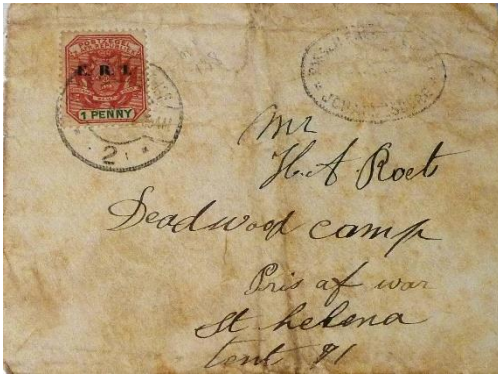 POSTZEGEL
E. R. I.
1 PENNY
2
Mr
H. A Roets
Deadwood camp
Pris af war
St helena
tent 91